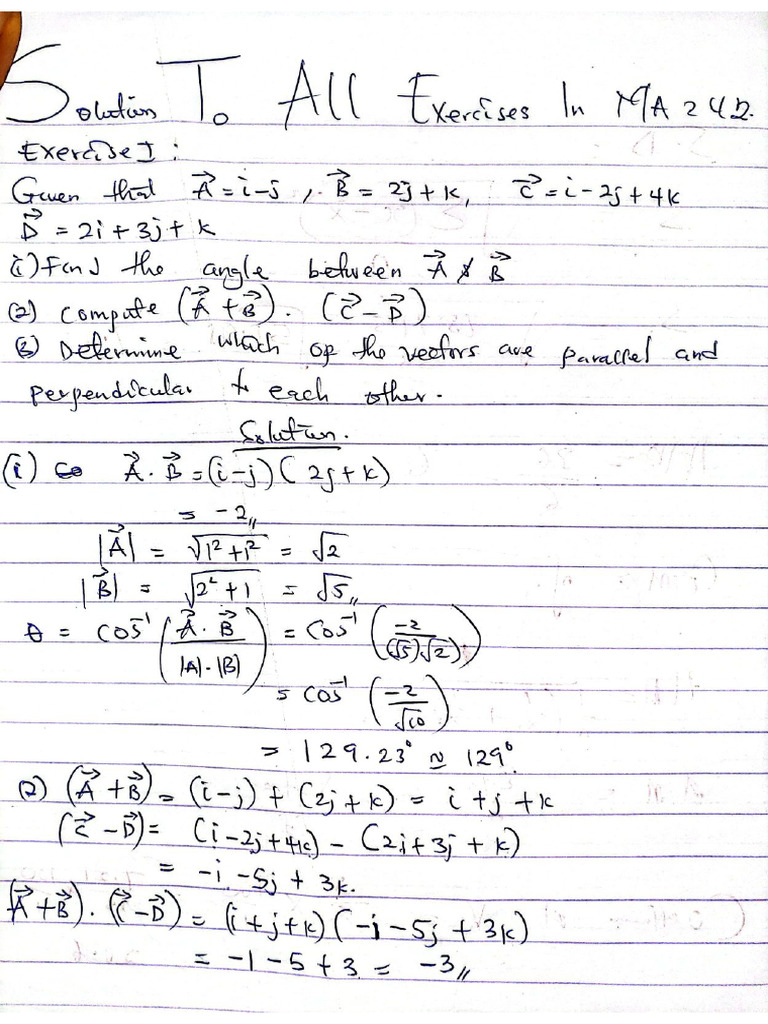 Solution To All Exercises In MA 242.
Exercise I :
Given that A⃗ = i-j , B⃗ = 2j + k, C⃗ = i - 2j + 4k
D⃗ = 2i + 3j + k
(i) Find the angle between A⃗ & B⃗
(2) Compute (A⃗ + B⃗) . (C⃗ - D⃗)
(3) Determine which of the vectors are parallel and
perpendicular to each other.
Solution.
(i) A⃗ . B⃗ = (i-j) ( 2j + k)
= -2,,
|A⃗| = √1² + 1² = √2
|B⃗| = √2² + 1 = √5,,
θ = cos⁻¹ (A⃗ . B⃗ / |A| . |B|) = cos⁻¹ (-2 / (√5)(√2))
= cos⁻¹ (-2 / √10)
= 129.23° ≈ 129°
(2) (A⃗ + B⃗) = (i-j) + (2j + k) = i + j + k
(C⃗ - D⃗) = (i - 2j + 4k) - (2i + 3j + k)
= -i - 5j + 3k.
(A⃗ + B⃗) . (C⃗ - D⃗) = (i + j + k) (-i - 5j + 3k)
= -1 - 5 + 3 = -3,,